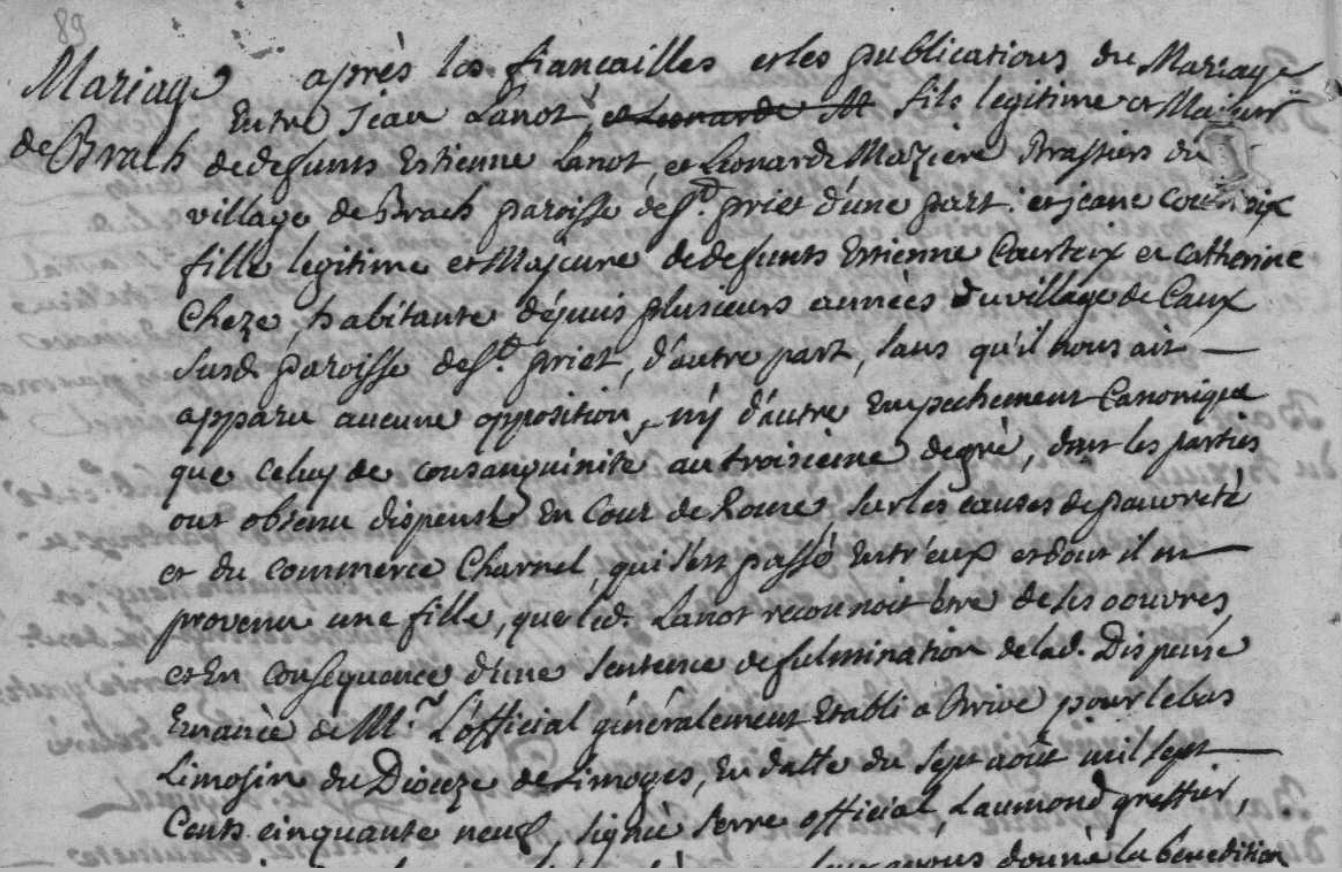 89
Mariage
de Brach
après les fiancailles et les publications du Mariage
Entre Jean Lanot, et Leonarde M fils legitime et Majeur
de defunts Estienne Lanot, et Leonarde Maziere Brassiers du
village de Brach paroisse de St. priet d'une part. et jeane Courteix
fille legitime et Majeure de defunts Estienne Courteix et Catherine
Cheze, habitante dépuis plusieurs années du village de Caux
susd. paroisse de St. priet, d'autre part, sans qu'il nous ait
apparu aucune opposition, ny d'autre Empechement Canonique
que celuy de consanguinité au troisieme degré, dont les parties
ont obtenu dispense En Cour de Rome, sur les causes de pauvreté
et du commerce Charnel, qui s'est passé Entr'eux et dont il en
provenu une fille, que led. Lanot reconnoit être de ses oeuvres,
et En consequence d'une sentence de fulmination de lad. Dispense
Emanée de Mr. L'official généralement Etabli a Brive pour le bas
Limosin du Dioceze de Limoges, En datte du sept août mil sept
Cents cinquante neuf, signée Serre official, Laumond greffier,
avons donné la benediction